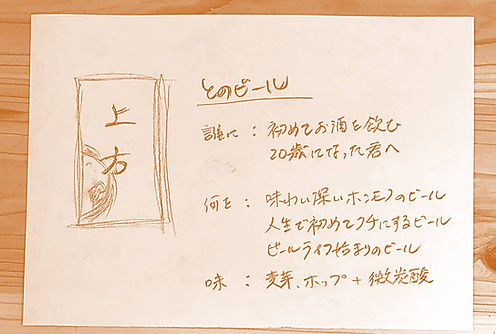 上方
とのビール
誰に : 初めてお酒を飲む
20歳になった君へ
何を : 味わい深いホンモノのビール
人生で初めてクチにするビール
ビールライフ始まりのビール
味 : 麦芽、ホップ + 微炭酸